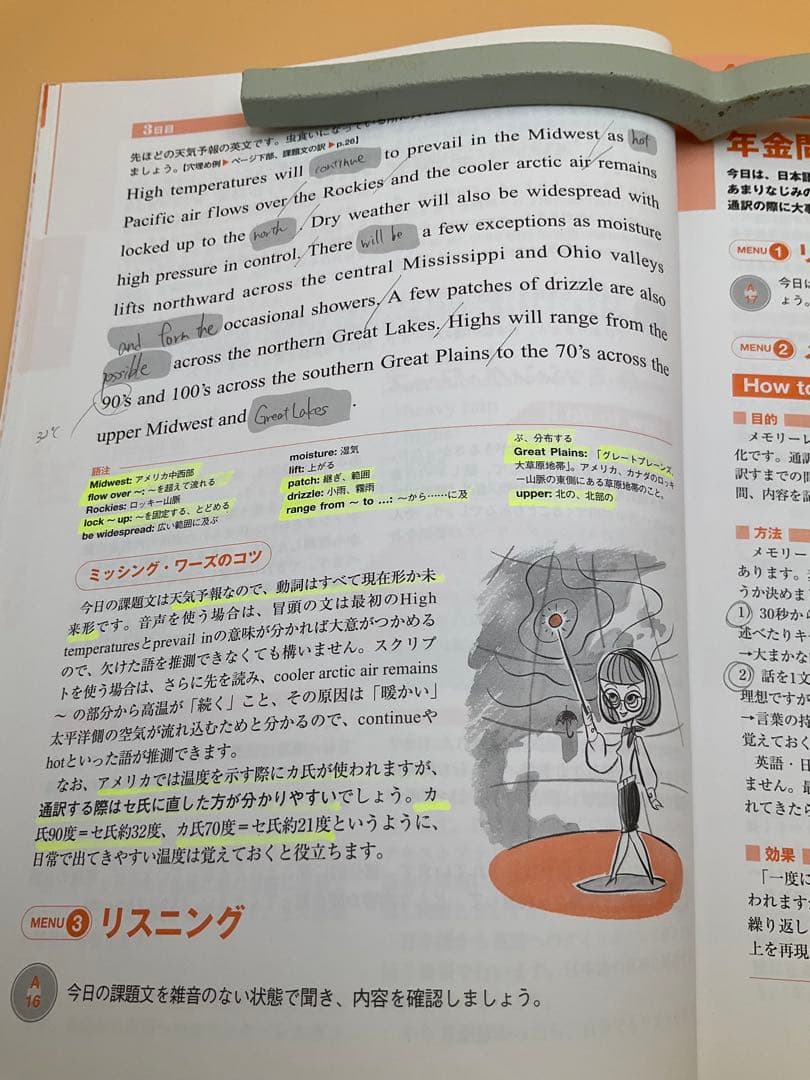 3日目
先ほどの天気予報の英文です。虫食いになっている
ましょう。【穴埋め例▶ページ下部、課題文の訳▶p.26】
High temperatures will continue to prevail in the Midwest as hot
Pacific air flows over the Rockies and the cooler arctic air remains
locked up to the north. Dry weather will also be widespread with
high pressure in control. There will be a few exceptions as moisture
lifts northward across the central Mississippi and Ohio valleys
and form the occasional showers. A few patches of drizzle are also
possible across the northern Great Lakes. Highs will range from the
90's and 100's across the southern Great Plains to the 70's across the
32℃
upper Midwest and Great Lakes.
語注
Midwest: アメリカ中西部
flow over ~: ~を超えて流れる
Rockies: ロッキー山脈
lock ~ up: ~を固定する、とどめる
be widespread: 広い範囲に及ぶ
moisture: 湿気
lift: 上がる
patch: 継ぎ、範囲
drizzle: 小雨、霧雨
range from ~ to ...: ~から……に及
ぶ、分布する
Great Plains: 「グレートプレーンズ、
大草原地帯」。アメリカ、カナダのロッキ
ー山脈の東側にある草原地帯のこと。
upper: 北の、北部の
ミッシング・ワーズのコツ
今日の課題文は天気予報なので、動詞はすべて現在形か未
来形です。音声を使う場合は、冒頭の文は最初のHigh
temperaturesとprevail inの意味が分かれば大意がつかめる
ので、欠けた語を推測できなくても構いません。スクリプ
トを使う場合は、さらに先を読み、cooler arctic air remains
~ の部分から高温が「続く」こと、その原因は「暖かい」
太平洋側の空気が流れ込むためと分かるので、continueや
hotといった語が推測できます。
なお、アメリカでは温度を示す際にカ氏が使われますが、
通訳する際はセ氏に直した方が分かりやすいでしょう。カ
氏90度＝セ氏約32度、カ氏70度＝セ氏約21度というように、
日常で出てきやすい温度は覚えておくと役立ちます。
MENU 3 リスニング
A
16
今日の課題文を雑音のない状態で聞き、内容を確認しましょう。
年金問
今日は、日本語
あまりなじみの
通訳の際に大事
MENU 1
A
17
今日
ょう。
MENU 2
How to
目的
メモリーレ
化です。通訳
訳すまでの間
間、内容を記
方法
メモリー
あります。
うか決めま
1) 30秒から
述べたりキー
→大まかな
2) 話を1文
理想ですが
→言葉の持
覚えておく
英語・日
ません。最
れてきたら
効果
「一度に
われますか
繰り返し
上を再現